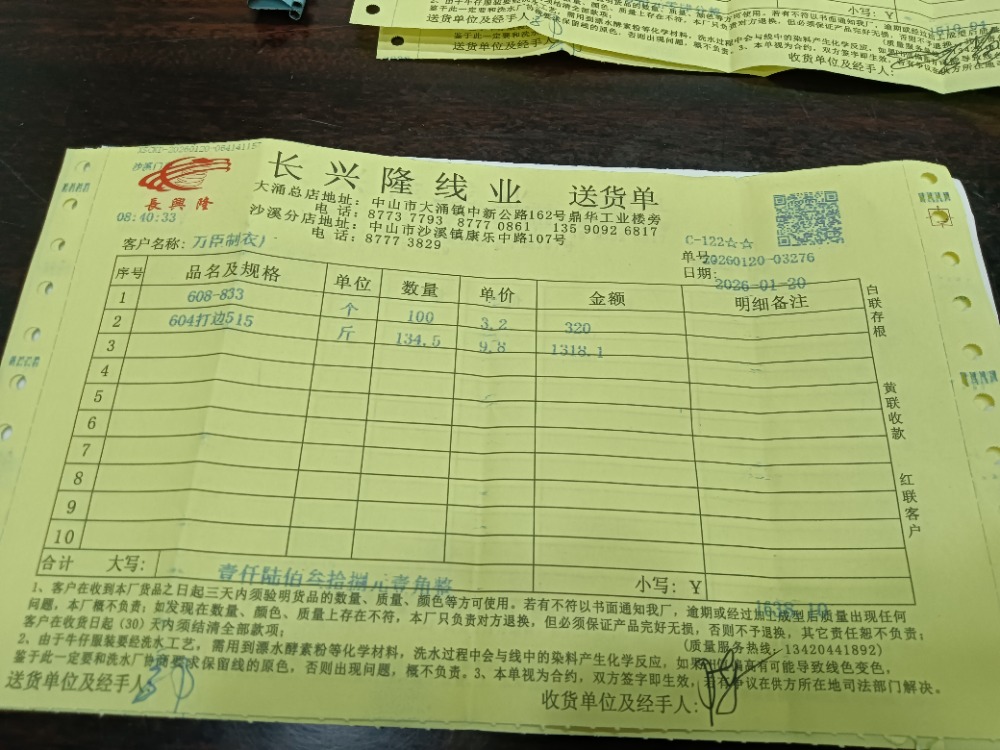 送货单位及经手人
收货单位及经手人:
长兴隆线业 送货单
沙溪门
長興隆
08:40:33
大涌总店地址: 中山市大涌镇中新公路162号鼎华工业楼旁
电 话: 8773 7793 8777 0861 135 9092 6817
沙溪分店地址: 中山市沙溪镇康乐中路107号
电 话: 8777 3829
C-122☆☆
客户名称: 万臣制衣
单号 20260120-03276
日期: 2026-01-20
序号 品名及规格 单位 数量 单价 金额 明细备注
1 608-833 个 100 3.2 320
2 604打边515 斤 134.5 9.8 1318.1
3
4
5
6
7
8
9
10
白联存根
黄联收款
红联客户
合计 大写: 壹仟陆佰叁拾捌元壹角整 小写: Y 1638.10
1、客户在收到本厂货品之日起三天内须验明货品的数量、质量、颜色等方可使用。若有不符以书面通知我厂，逾期或经过加工成型后质量出现任何
问题，本厂概不负责；如发现在数量、颜色、质量上存在不符，本厂只负责对方退换，但必须保证产品完好无损，否则不予退换，其它责任恕不负责；
客户在收货日起(30)天内须结清全部款项；
(质量服务热线: 13420441892)
2、由于牛仔服装要经洗水工艺，需用到漂水酵素粉等化学材料，洗水过程中会与线中的染料产生化学反应，如果 有可能导致线变色，
鉴于此一定要和洗水厂协商要求保留线的原色，否则出现问题，概不负责。3、本单视为合约，双方签字即生效，若有争议在供方所在地司法部门解决。
送货单位及经手人
收货单位及经手人: